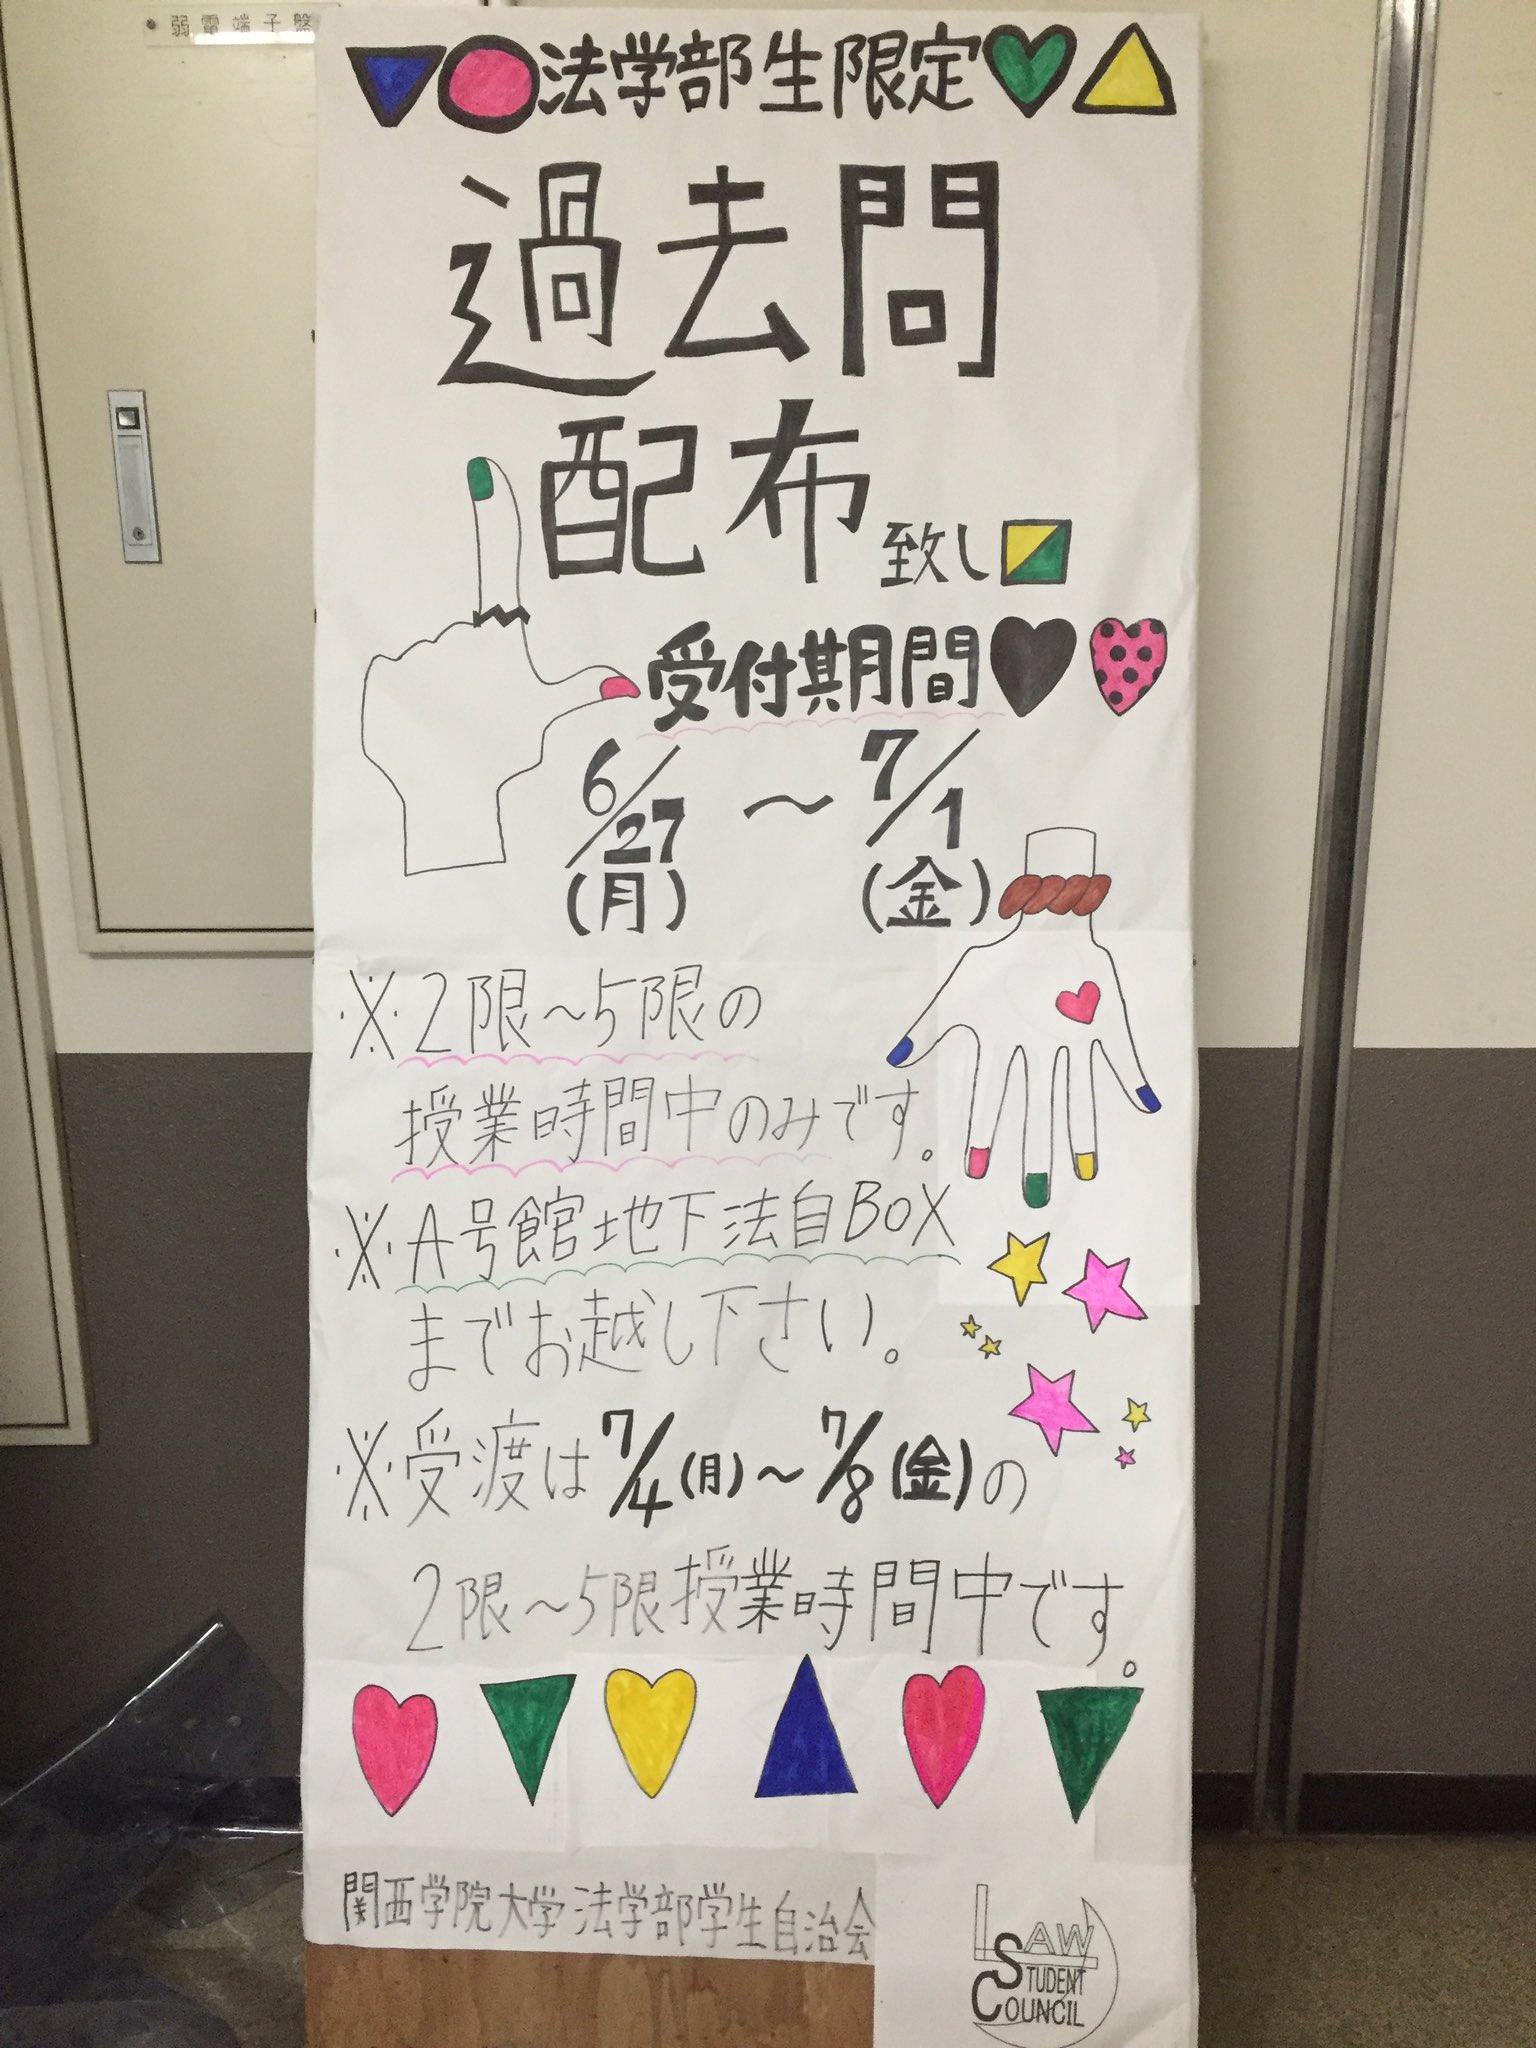 弱電端子盤
法学部生限定
過去問
配布致し〼
受付期間
6/27 〜 7/1
(月) (金)
※2限〜5限の
授業時間中のみです。
※A号館地下法自BOX
までお越し下さい。
※受渡は7/4(月)〜7/8(金)の
2限〜5限授業時間中です。
関西学院大学法学部学生自治会
LAW
STUDENT
COUNCIL